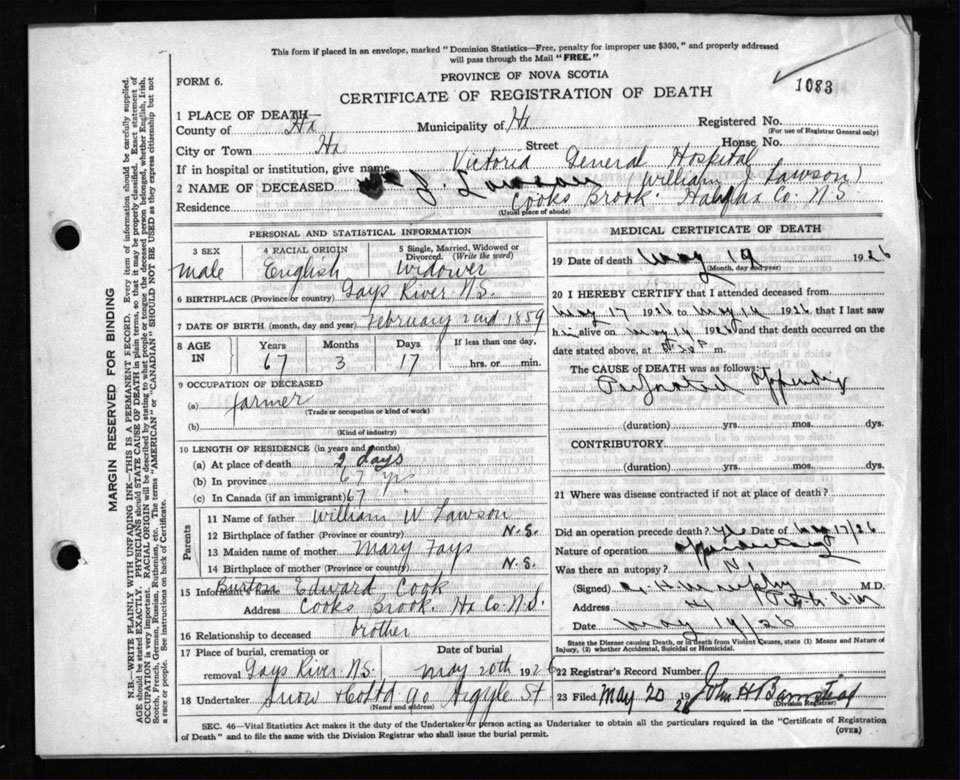 This form if placed in an envelope, marked "Dominion Statistics—Free, penalty for improper use $300," and properly addressed
will pass through the Mail "FREE."
1083
FORM 6.
PROVINCE OF NOVA SCOTIA
CERTIFICATE OF REGISTRATION OF DEATH
1 PLACE OF DEATH—
County of Hx Municipality of Hx Registered No.
(For use of Registrar General only)
City or Town Hx Street House No.
If in hospital or institution, give name Victoria General Hospital
2 NAME OF DECEASED J. Lawson William J Lawson)
Residence Cooks Brook. Halifax Co. N.S
(Usual place of abode)
PERSONAL AND STATISTICAL INFORMATION
3 SEX 4 RACIAL ORIGIN 5 Single, Married, Widowed or
Divorced. (Write the word)
Male English Widower
6 BIRTHPLACE (Province or country) Gays River N.S.
7 DATE OF BIRTH (month, day and year) February 2nd 1859
8 AGE IN Years Months Days If less than one day,
67 3 17 hrs. or min.
9 OCCUPATION OF DECEASED
(a) farmer
(Trade or occupation or kind of work)
(b)
(Kind of industry)
10 LENGTH OF RESIDENCE (in years and months)
(a) At place of death 2 days
(b) In province 67 yrs
(c) In Canada (if an immigrant) 67
Parents
11 Name of father William W Lawson
12 Birthplace of father (Province or country) N.S.
13 Maiden name of mother Mary Fays
14 Birthplace of mother (Province or country) N.S.
15 Informant's name Burton Edward Cook
Address Cooks Brook. Hx Co. N.S.
16 Relationship to deceased brother
17 Place of burial, cremation or Date of burial
removal Gays River N.S. May 20th 1926
18 Undertaker Snow & Co Ltd 90 Argyle St
(Name and address)
MEDICAL CERTIFICATE OF DEATH
19 Date of death May 19 1926
(Month, day and year)
20 I HEREBY CERTIFY that I attended deceased from
May 17 1926 to May 19 1926 that I last saw
him alive on May 19 1926 and that death occurred on the
date stated above, at m.
The CAUSE of DEATH was as follows:
Perforated Appendix
(duration) yrs. mos. dys.
CONTRIBUTORY
(duration) yrs. mos. dys.
21 Where was disease contracted if not at place of death?
Did an operation precede death? Yes Date of May 17/26
Nature of operation
Was there an autopsy? No
(Signed) Murphy M.D.
Address
Date May 19/26
State the Disease causing Death, or in death from Violent Causes, state (1) Means and Nature of
Injury, (2) whether Accidental, Suicidal or Homicidal.
22 Registrar's Record Number
23 Filed May 20 1926 John H
(Division Registrar)
SEC. 46—Vital Statistics Act makes it the duty of the Undertaker or person acting as Undertaker to obtain all the particulars required in the "Certificate of Registration
of Death" and to file the same with the Division Registrar who shall issue the burial permit. (OVER)
MARGIN RESERVED FOR BINDING
N.B.—WRITE PLAINLY WITH UNFADING INK—THIS IS A PERMANENT RECORD. Every item of information should be carefully supplied.
AGE should be stated EXACTLY. PHYSICIANS should STATE CAUSE OF DEATH in plain terms, so that it may be properly classified. Exact statement of
OCCUPATION is very important. RACIAL ORIGIN will be described by stating to what people or tongue the deceased person belonged, whether English, Irish,
Scotch, French, German, Russian, Ruthenian, etc. The terms "AMERICAN" or "CANADIAN" SHOULD NOT BE USED as they express citizenship but not
a race or people. See instructions on back of Certificate.